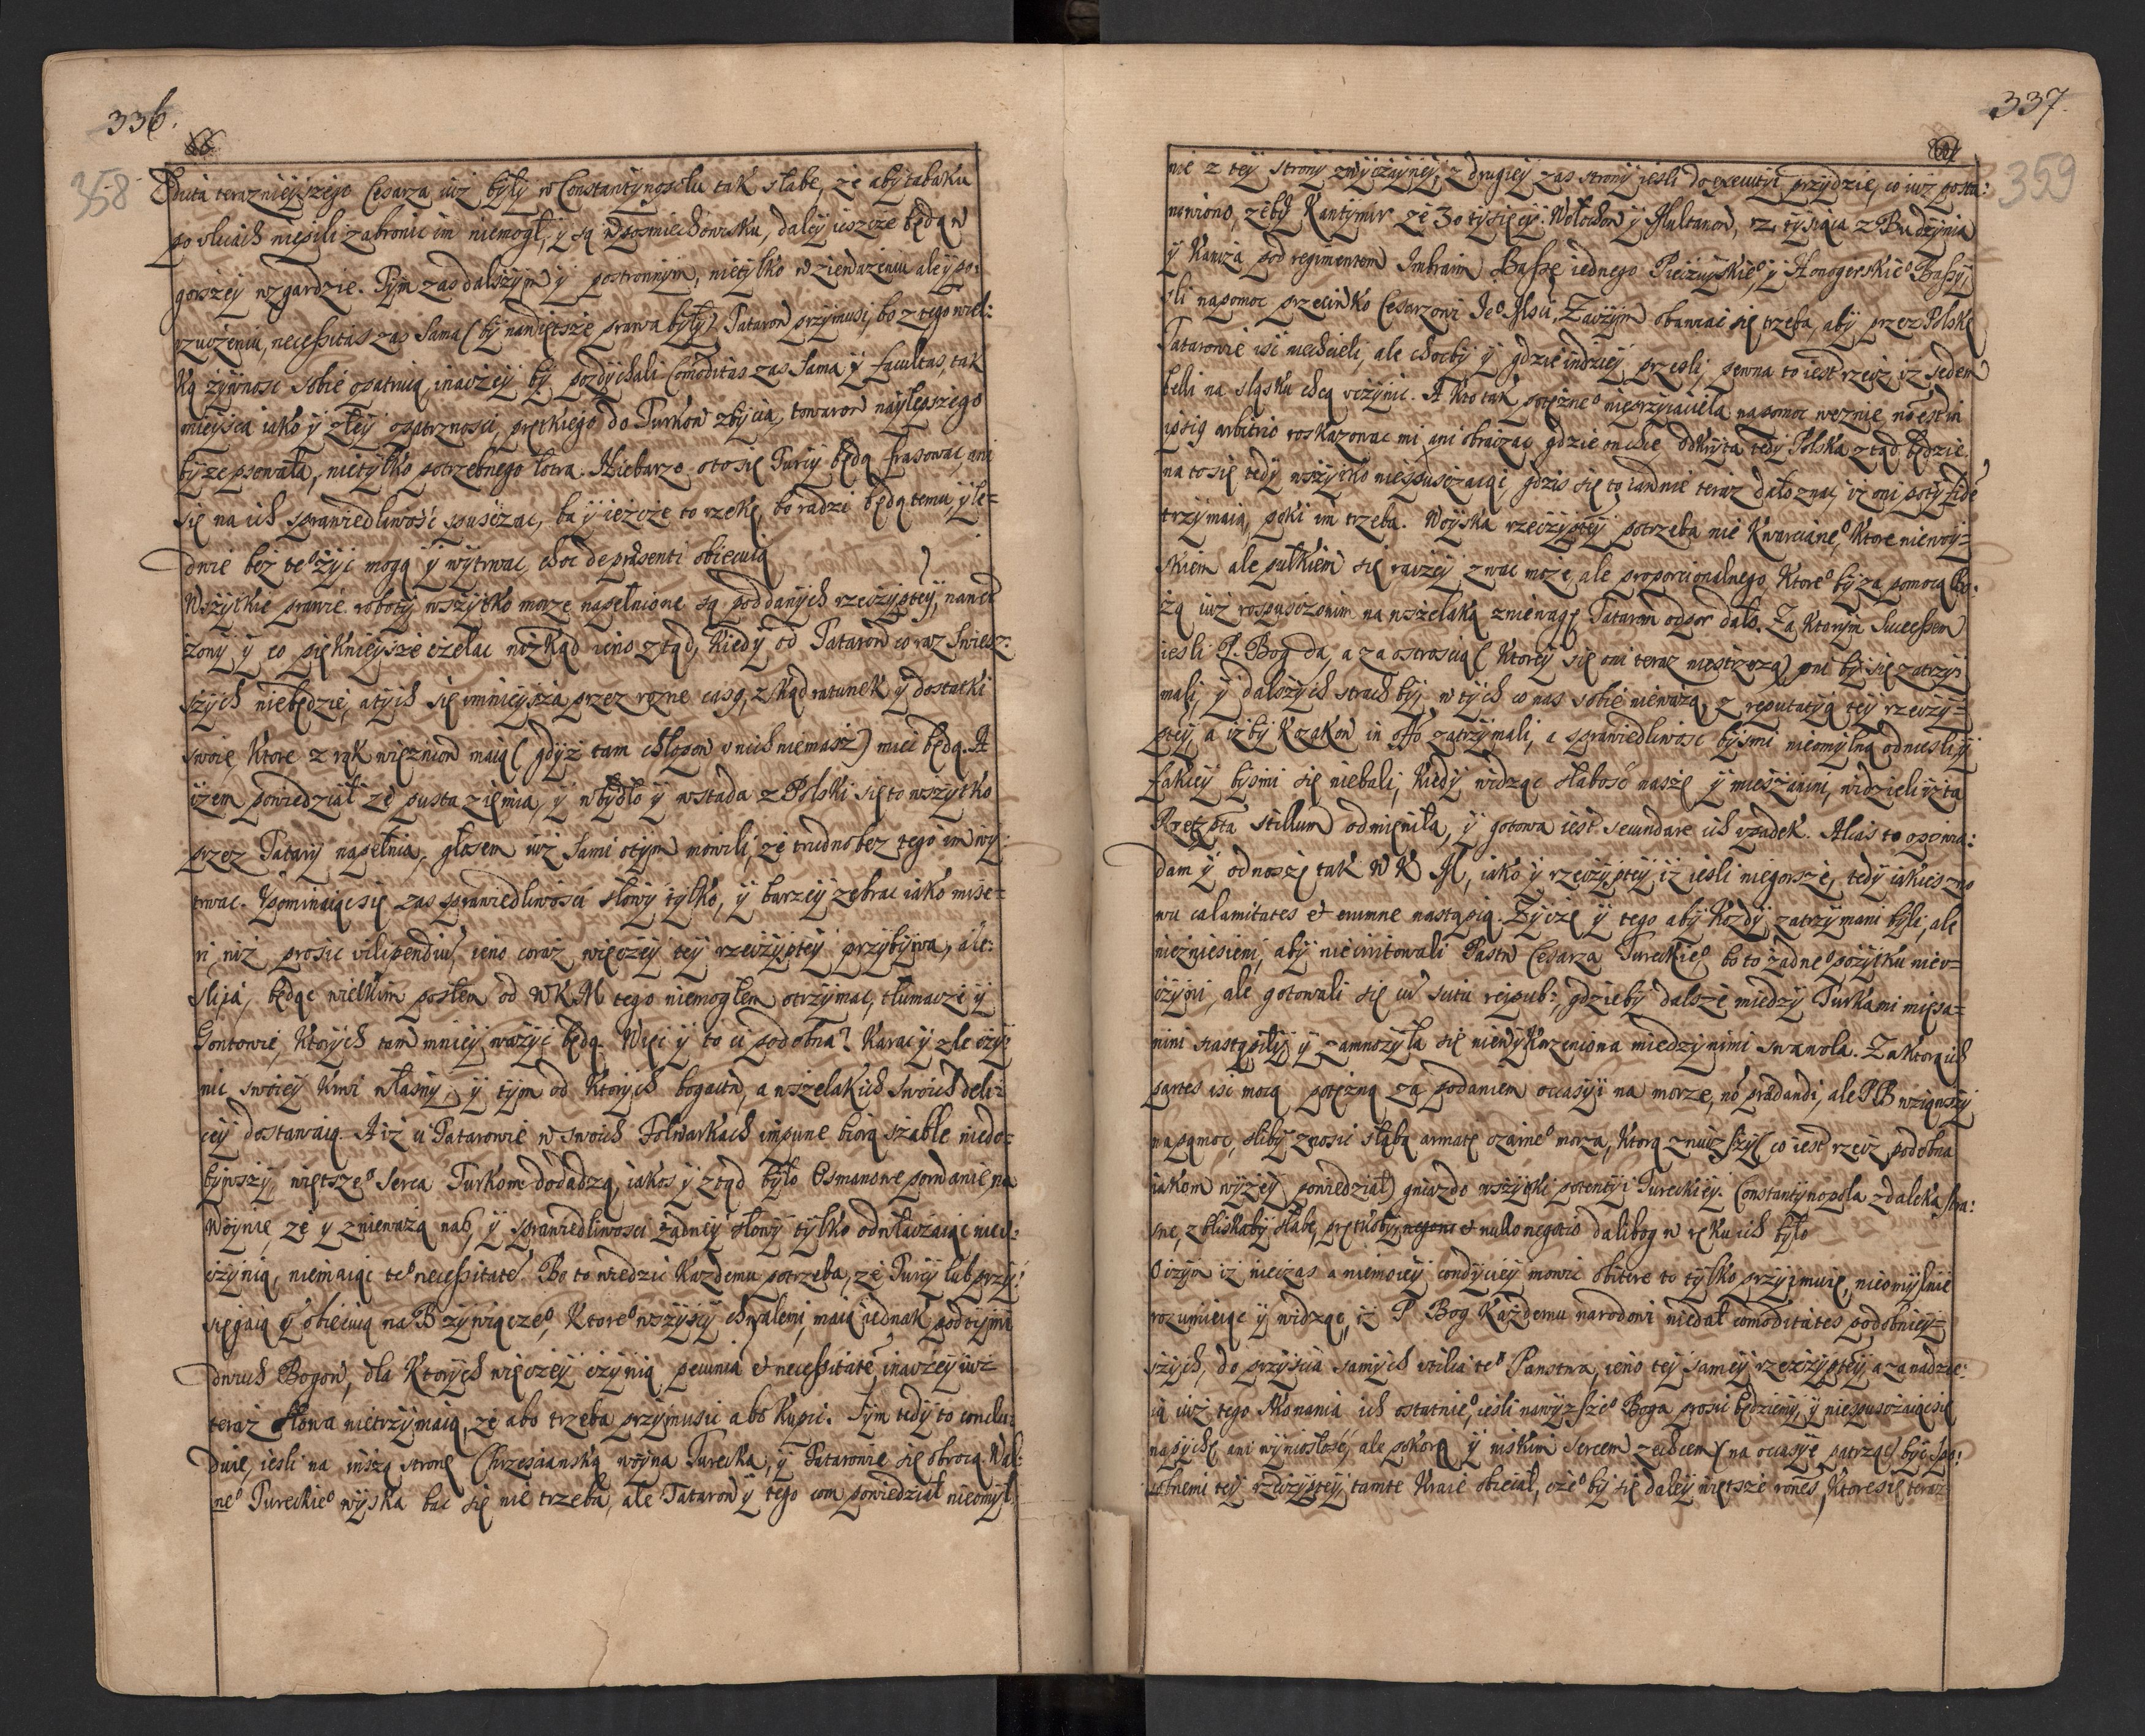 336.
88
358
Edicta teraznieyszego Cesarza iuż były w Constantynopolu tak słabe, że aby tabaku
po ulicach niepili zabronić im niemogł, y są w pośmiechowisku, daley ieszcze będą w
gorszey wzgardzie. Tym zaś dalszym y postronnym, nietylko w zieważeniu ale y po:
rzuceniu, necessitas zas sama (by nawiętsze prawa były) Tatarow przymusi, bo z tego wiel:
ką żywnosc sobie opatruią, inaczey by pozdychali Comoditas zas sama y facultas, tak
mieysca iako y złey opatrznosci, prętkiego do Turkow zbycia, towarow naylepszego
by zepsowała, nietylko potrzebnego łotra. Niebarzo oto się Turcy będą frasować, ani
się na ich sprawiedliwość spuszczać, ba y ieżcże to rzekę, bo radzi będą temu, y le=
dwie bez te° żyć mogą y wytrwac, choc de præsenti obiecuią
Wszytkie prawie roboty wszytko morze napełnione są poddanych rzeczyptey, nawet
żony y co pięknieysze czelac niżkąd ieno ztąd, kiedy od Tatarow co raz swiesz:
szych niebędzie, a tych się umnieysza przez rożne casg, zkąd ratunek y dostatki
swoie, ktore z rąk więzniow maią (gdyż tam chłopow u nich niemasz) mieć będą. A
iżem powiedział że pusta ziemia, y w bydło y w stada z Polski się to wszytko
przez Tatary napełnia, głosem iuż sami otym mowili, że trudno bez tego im wy
trwac. Upominaiąc się zas sprawiedliwosci słowy tylko, y barzey zebrac iako mise=
ri, niż prosic vilipendiu, ieno coraz więczey tey rzeczyptey przybywa, ale:
śli ia, będąc wielkim posłem od WKM tego niemogłem otrzymac, tłumacze y
Gontowie, ktorych tam mniey ważyć będą. Więc y to ci podobna? Karac y zle czy
nic swoiey krwi własny, y tym od ktorych bogactw, a wszelakich swoich deli=
cey dostawaią. A iż ci Tatarowie w swoich Folwarkach impune biorą szable niedo=
bywszy, więtsze° serca Turkom dodadzą, iakos y ztąd było Osmanowe porwanie na
Woynię, że y znieważą nas, y sprawiedliwosci żadney słowy tylko odwłaczaiąc nieu:
czynią, niemaiąc te° necessitate. Bo to wiedzic każdemu potrzeba, że Turcy lub przy:
sięgaią y obiecuią na B żywiącze°, ktore° wszyscy chwalemi, maią iednak pod tymi
dwuch Bogow, dla ktorych więczey czynią, pecunia et necessitate, inaczey iuż
teraz słowa nietrzymaią, że abo trzeba przymusic abo kupic. Tym tedy to conclu:
duie, iesli na inszą stronę Chrzescianską woyna Turecka, y Tatarowie się obrocą Wal:
ne° Tureckie° woyska bac się nie trzeba, ale Tatarow y tego com powiedział nieomyl
337.
359
nie z tey strony zwyczayney, z drugiey zas strony iesli do executiy przydzie, co iuż posta:
nowiono, zeby Kantymir ze 30 tysięcy: Wołochow y Multanow, tysiąca z Budzynia
y Kaniża pod regimentem Imbraim Baszę iednego Pieczuyskie°, y Honogerskie° Baszy,
śli na pomoc przeciwko Cesarzowi Je° Msci, Zaczym obawiac się trzeba, aby przez Polskę
Tatarowie isc niechcieli, ale choćby y gdzieindziey przesli, pewna to iest rzecz iż sedem
belli na sląsku chcą uczynic. A kto tak potężne° nieprzyiaciela na pomoc wezmie, no est in
ipsię arbitrio roskazowac mi ani obraczac gdzie on chce odkryta tedy Polska ztąd będzie.
na to się tedy wszytko niespuszczaiąc, gdzis się to iawnie teraz dało znac, iż oni poty fidē
trzymaią, poki im trzeba. Woyska rzeczyptey potrzeba nie Kwarciane°, ktore niewoy=
skiem ale pułkiem się raczey zwac może, ale proporcionalnego, ktore° by za pomocą Bo:
żą iuż rospusczonim na wszelaką zniewagę Tatarom odpor dało. Za ktorym Successem
iesli P. Bog da, a za ostroscią (ktorey się oni teraz niestrzegą) oni by się zatrzy
mali, y dalszych strach by w tych co nas sobie nieważą, z reputatyą tey rzeczy=
ptey, a iżby Kozakow in offo zatrzymali, a sprawiedliwosc bysmi nieomylną odniesli y
fakiey bysmi się niebali, kiedy widząc słabość naszę y mieszanini, widzieli iż ta
Rzeptą stillum odmięniła, y gotowa iest secundare ich upadek. Alias to opowia:
dam y odnoszę tak W K M, iako y rzeczyptey iż iesli niegorsze, tedy iakies zno
wu calamitates et erumne nastąpią. Życzę y tego aby Kozdy zatrzymani byli, ale
niezniesieni, aby nieirritowali Pastw Cesarza Tureckie°, bo to żadne° pożytku nieu=
czyni, ale gotowali się iuż sutu reipub:, gdzieby dalsze miedzy Turkami mięsa=
nini nastąpiły y zamnożyła się niewykorzeniona miedzy nimi swawola. Zaktorąich
partes isc mocą potężną za podaniem occasyi na morze, nō prædandi, ale PB wziąwszy
na pomoc, śliby znosic słabą armatę czarne° morza, ktorą zniozszy (co iest rzecz podobna
iakom wyżey powiedział) gniazdo wszytki potencyi Tureckiey. Constantynopola zdaleka stra:
sne, z bliskaby słabe, prętkoby et nullo negotio dalibog w ręku ich było
O czym iż nieczas a niemoiey condyciey mowic obitere to tylko przyimuię, nieomylnie
rozumieiąc y widząc, iż P Bog każdemu narodowi niedał comoditates podobniey=
szych, do przyscia samych utilia te° Panstwa, ieno tey samey rzeczyptey, a za nadzie:
ią iuż tego Skonania ich ostatnie°, iesli nawyzsze° Boga prosic będziemy, y niespuszczaiąc się
na pychę ani wyniosłość, ale pokorą y niskim sercem zechcem (na occasyę patrząc) być spo:
sobnemi tey rzeczyptey tamte kraie obiecał, cze° by się daley więtsze rones, ktore się teraz